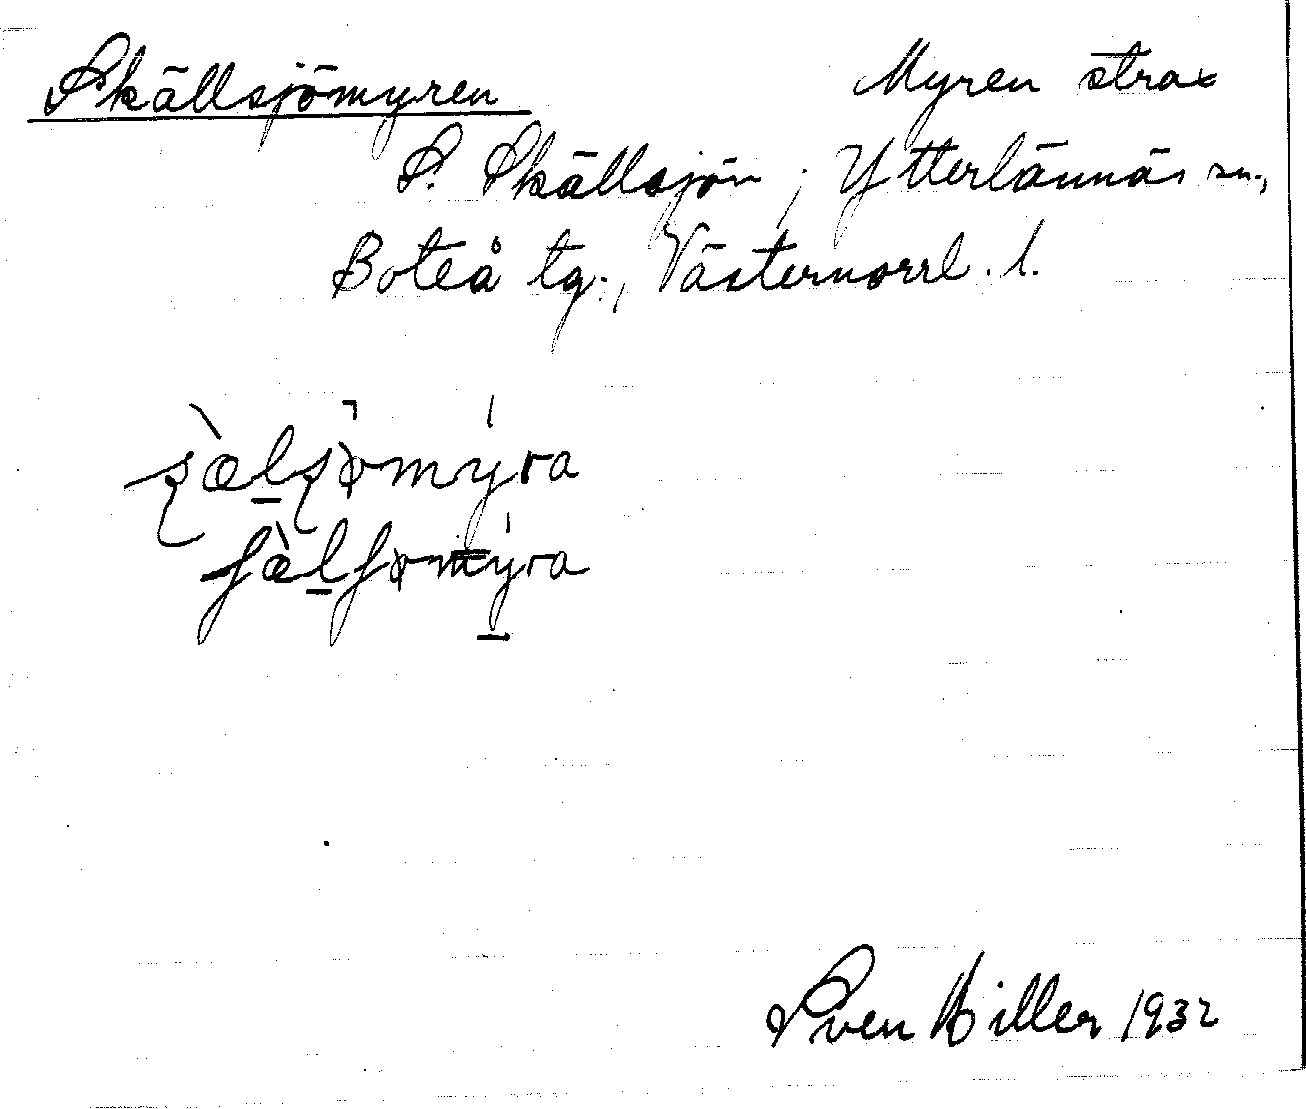 Skällsjömyren
Myren strax
S. Skällsjön, Ytterlännäs sn.,
Boteå tg., Västernorrl. l.
Sven Hiller 1932